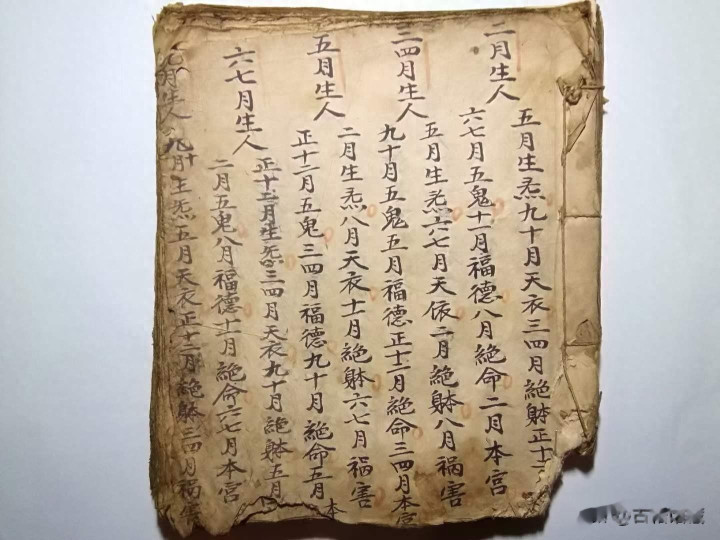 二月生人
五月生炁九十月天衣三四月絶躰正十二
六七月五鬼十一月福德八月絶命二月本宫
三四月生人
五月生炁六七月天依二月絶躰八月祸害
九十月五鬼五月福德正十二月絶命三四月本宫
五月生人
二月生炁八月天衣十一月絶躰六七月祸害
正十二月五鬼三四月福德九十月絶命五月本
六七月生人
正十二月生炁三四月天衣九十月絶躰五月
二月五鬼八月福德十一月絶命六七月本宫
月生人
九十月生炁五月天衣正十二月絶躰三四月祸害